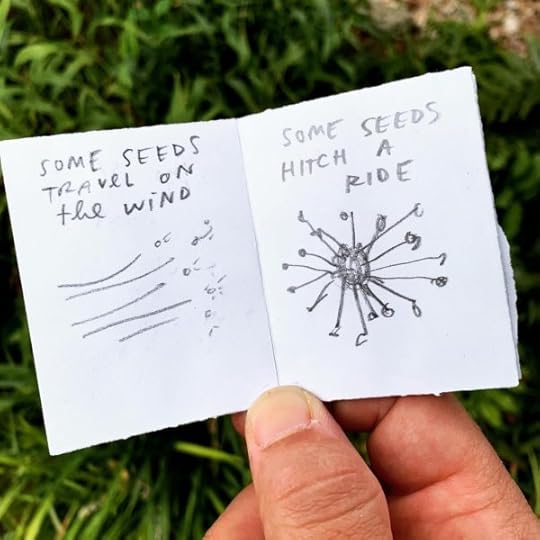 SOME SEEDS
TRAVEL ON
the WIND
SOME SEEDS
HITCH A
RIDE